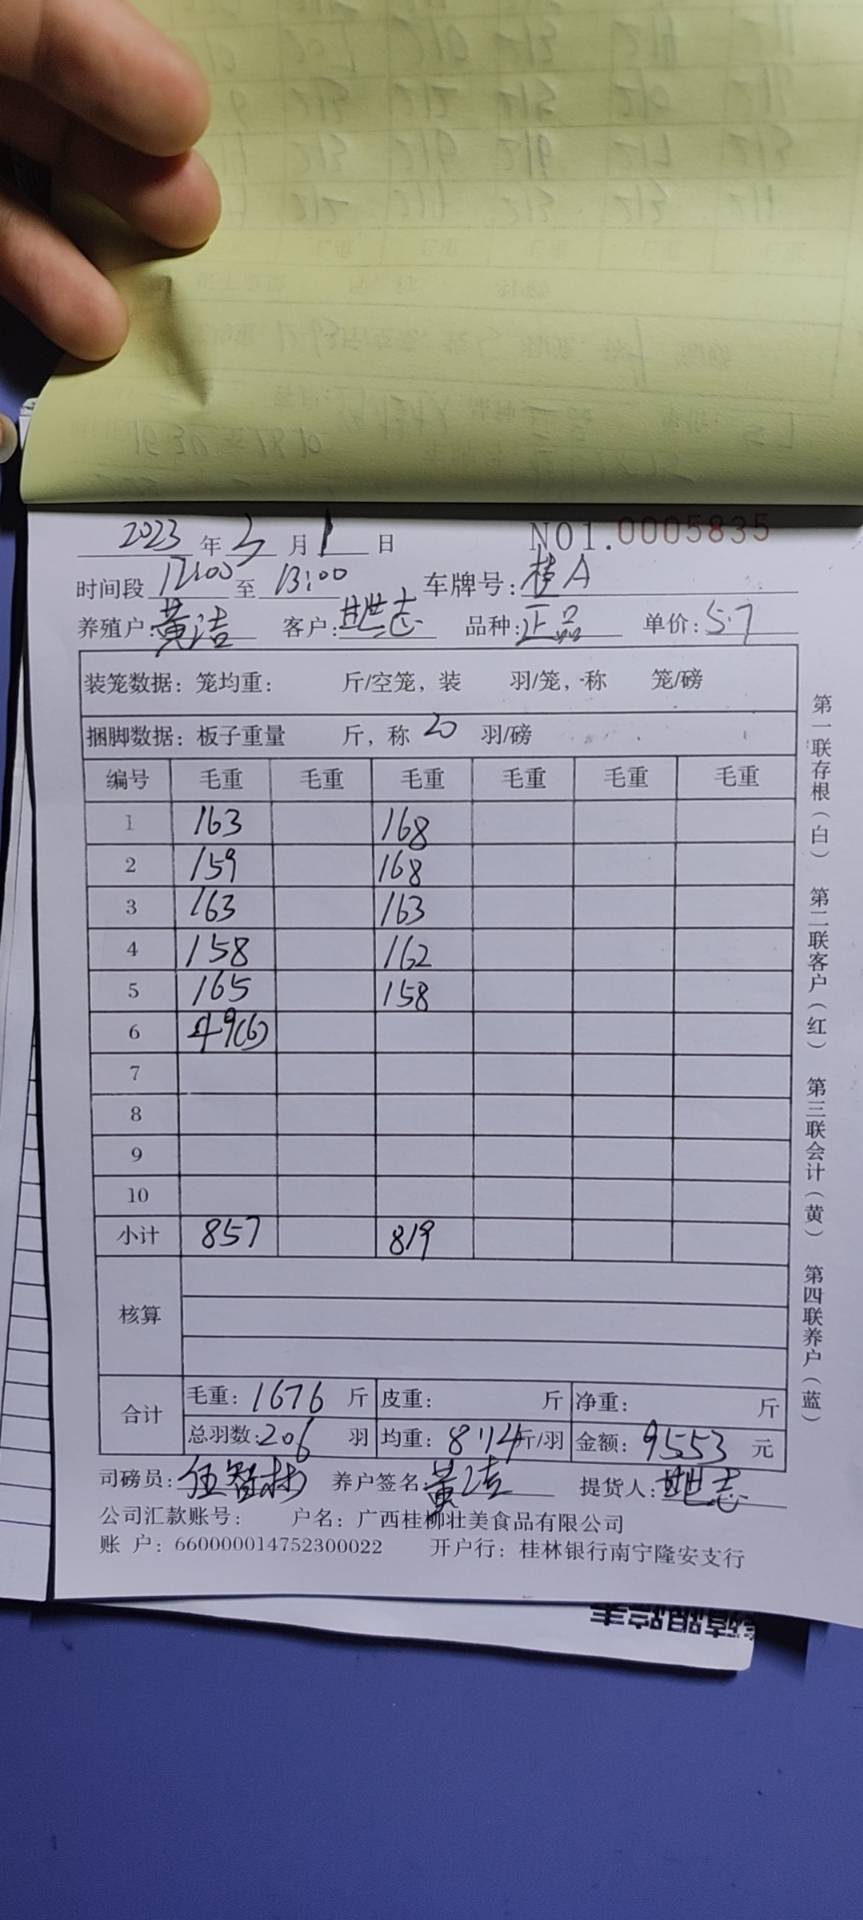 2023 年 3 月 1 日 NO1.0005835
时间段 12:00 至 13:00 车牌号: 桂A
养殖户: 黄洁 客户: 甘世志 品种: 正品 单价: 5.7
装笼数据: 笼均重: 斤/空笼, 装 羽/笼, 称 笼/磅
捆脚数据: 板子重量 斤, 称 20 羽/磅
编号 毛重 毛重 毛重 毛重 毛重 毛重
1 163 168
2 159 168
3 163 163
4 158 162
5 165 158
6 49(6)
7
8
9
10
小计 857 819
核算
合计 毛重: 1676 斤 皮重: 斤 净重: 斤
总羽数: 206 羽 均重: 8.14 斤/羽 金额: 9553 元
司磅员: 伍智彬 养户签名: 黄洁 提货人: 甘世志
公司汇款账号: 户名: 广西桂柳壮美食品有限公司
账 户: 660000014752300022 开户行: 桂林银行南宁隆安支行
第一联存根(白) 第二联客户(红) 第三联会计(黄) 第四联养户(蓝)